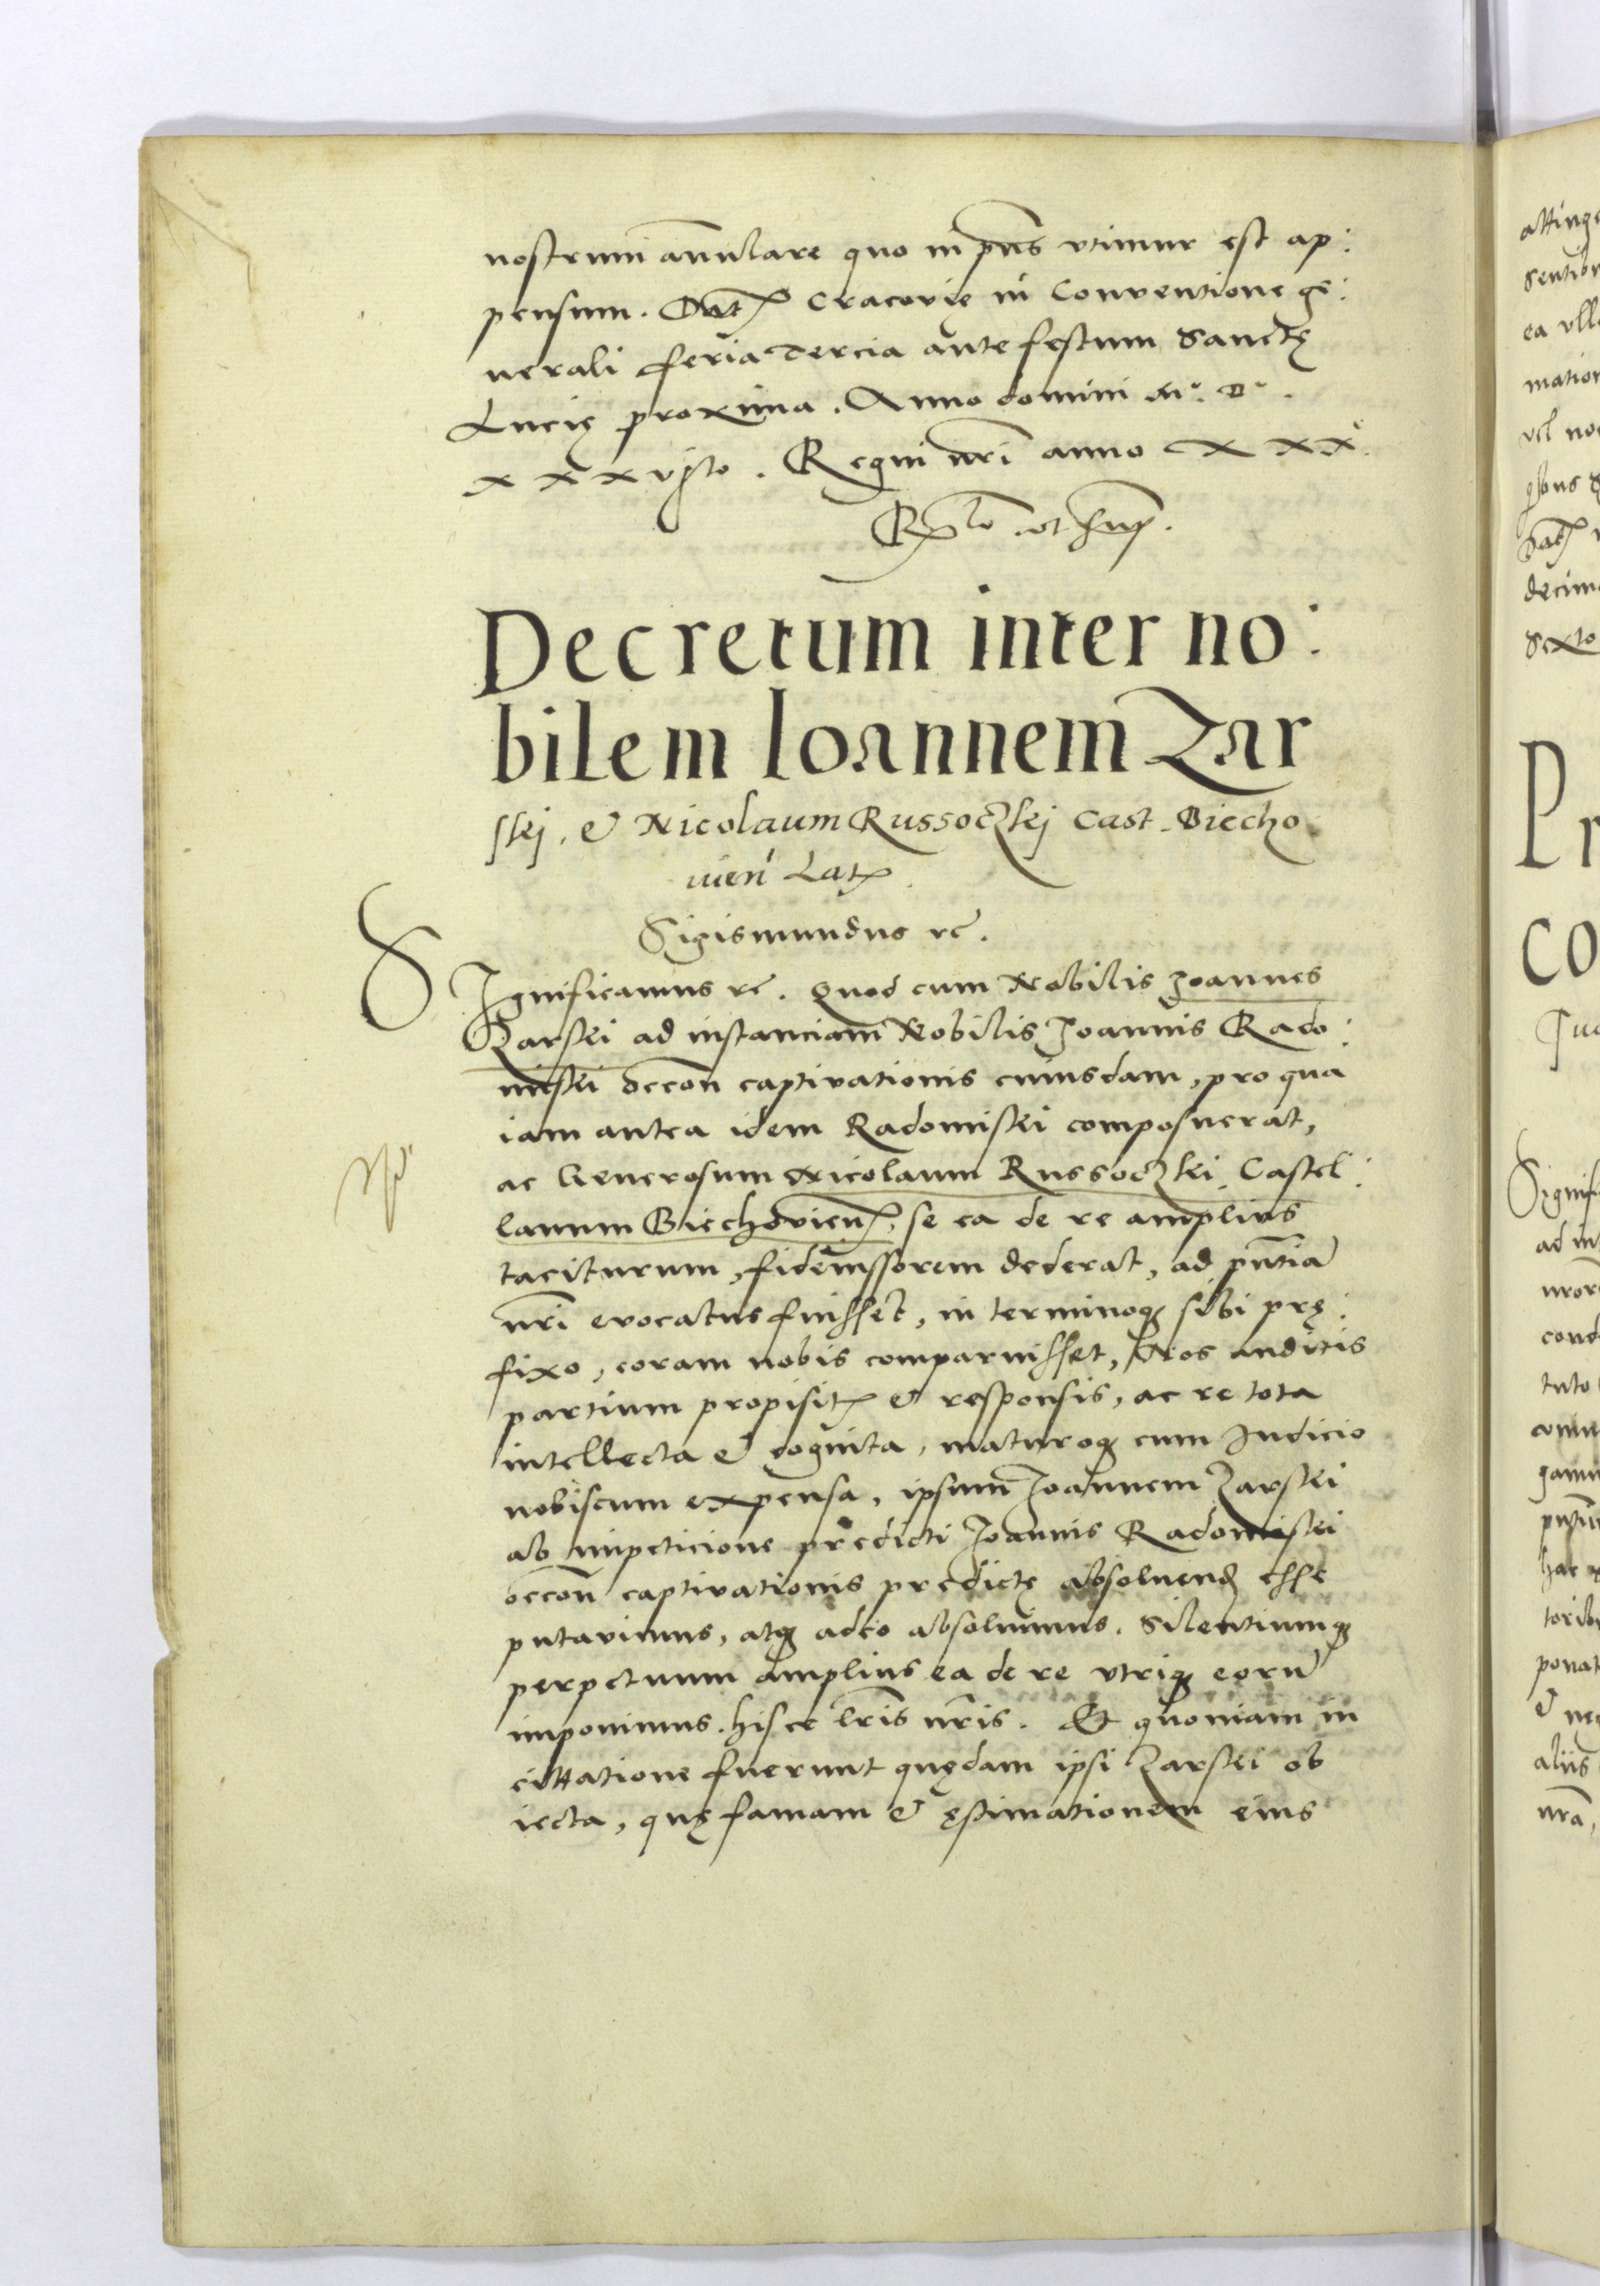 nostrum annulare quo in pñs vtimur est ap:
pensum. Dat Cracovię in Conventione ge:
nerali feria Tercia ante festum Sanctę
Lucię proxima. Anno domini Mº. Dº.
xxxvjto. Regni nri anno xxx.
Decretum inter no:
bilem Ioannem Zar
skej, & Nicolaum Russoczkej Cast. Biecho
vien Lat.
Sigismundus rc.
SIgnificamus rc. Quod cum Nobilis Joannes
Zarskei ad instanciam Nobilis Joannis Rado:
miskei occon captivationis cuiusdam, pro qua
iam antea idem Radomiskei composuerat,
ac Generosum Nicolaum Russoczkei Castel:
lanum Biechovien, se ea de re amplius
taciturum, fideiussorem dederat, ad pñtia
nri evocatus fuisset, in terminoq sibi prę:
fixo, coram nobis comparuisset, Nos auditis
partium propisit & responsis, ac re tota
intellecta & cognita, maturoq cum Iudicio
nobiscum expensa, ipsum Joannem Zarskei
ab impeticione predicti Joannis Radomiskei
occon captivationis predictę absoluend esse
putavimus, atq adeo absoluimus. Silentiumq
perpetuum amplius ea de re vtriq eorū
imponimus. hisce lris nris. Et quoniam in
cittatione fuerunt quędam ipsi Zarskei ob
iecta, quę famam & ęstimationem eius